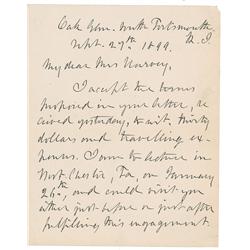 Oak Glen. North Portsmouth
R. I.
Sept. 27th 1899.
My dear Mrs Harvey.
I accept the terms
proposed in your letter, re
ceived yesterday, to wit, thirty
dollars and travelling ex-
penses. I am to lecture in
West Chester, Pa, on January
26th, and could visit you
either just before or just after
fulfilling this engagement.